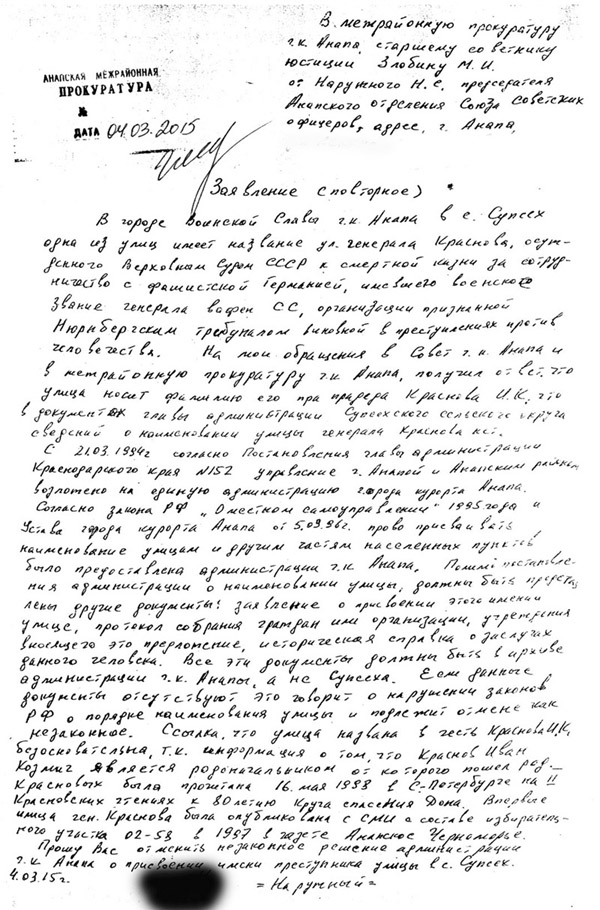 В межрайонную прокуратуру
г.к. Анапа, старшему советнику
юстиции Злобину М.И.
от Наружного Н.С. председателя
Анапского отделения Союза Советских
офицеров, адрес, г. Анапа,
АНАПСКАЯ МЕЖРАЙОННАЯ
ПРОКУРАТУРА
№
ДАТА 04.03.2015
Заявление (повторное)
В городе Воинской Славы г.к. Анапа в с. Супсех
одна из улиц имеет название ул. генерала Краснова, осуж-
денного Верховным Судом СССР к смертной казни за сотруд-
ничество с фашистской Германией, имевшего военское
звание генерала вафен СС, организации признанной
Нюрнбергским трибуналом виновной в преступлениях против
человечества. На мои обращения в Совет г.к. Анапа и
в межрайонную прокуратуру г.к. Анапа, получил ответ, что
улица носит фамилию его прапрадеда Краснова И.К, что
в документах главы администрации Супсехского сельского округа
сведений о наименовании улицы генерала Краснова нет.
С 21.03.1994г согласно Постановления главы администрации
Краснодарского края N152 управление г. Анапой и Анапским районом
возложено на единую администрацию города курорта Анапа.
Согласно закона РФ „О местном самоуправлении" 1995 года и
Устава города курорта Анапа от 5.09.96г. право присваивать
наименование улицам и другим частям населенных пунктов
было предоставлена администрации г.к Анапа. Помимо постановле-
ния администрации о наименовании улицы, должны быть представ
лены другие документы: заявление о присвоении этого имени
улице, протокол собрания граждан или организации, учреждения
вносящего это предложение, историческая справка о заслугах
данного человека. Все эти документы должны быть в архиве
администрации г.к. Анапы, а не Супсеха. Если данные
документы отсутствуют это говорит о нарушении законов
РФ о порядке наименования улицы и подлежит отмене как
незаконное. Ссылка, что улица названа в честь Краснова И.К,
безосновательна, т.к. информация о том, что Краснов Иван
Козмич является родоначальником от которого пошел род
Красновых была прочитана 16. мая 1998 в С-Петербурге на II
Красновских чтениях к 80 летию Круга спасения Дона. Впервые
улица ген. Краснова была опубликована с СМИ в составе избиратель-
ного участка 02-58 в 1997 в газете Анапское Черноморье.
Прошу Вас отменить незаконное решение администрации
г.к Анапа о присвоении имени преступника улицы в с. Супсех.
4.03.15г.
= Наружный =